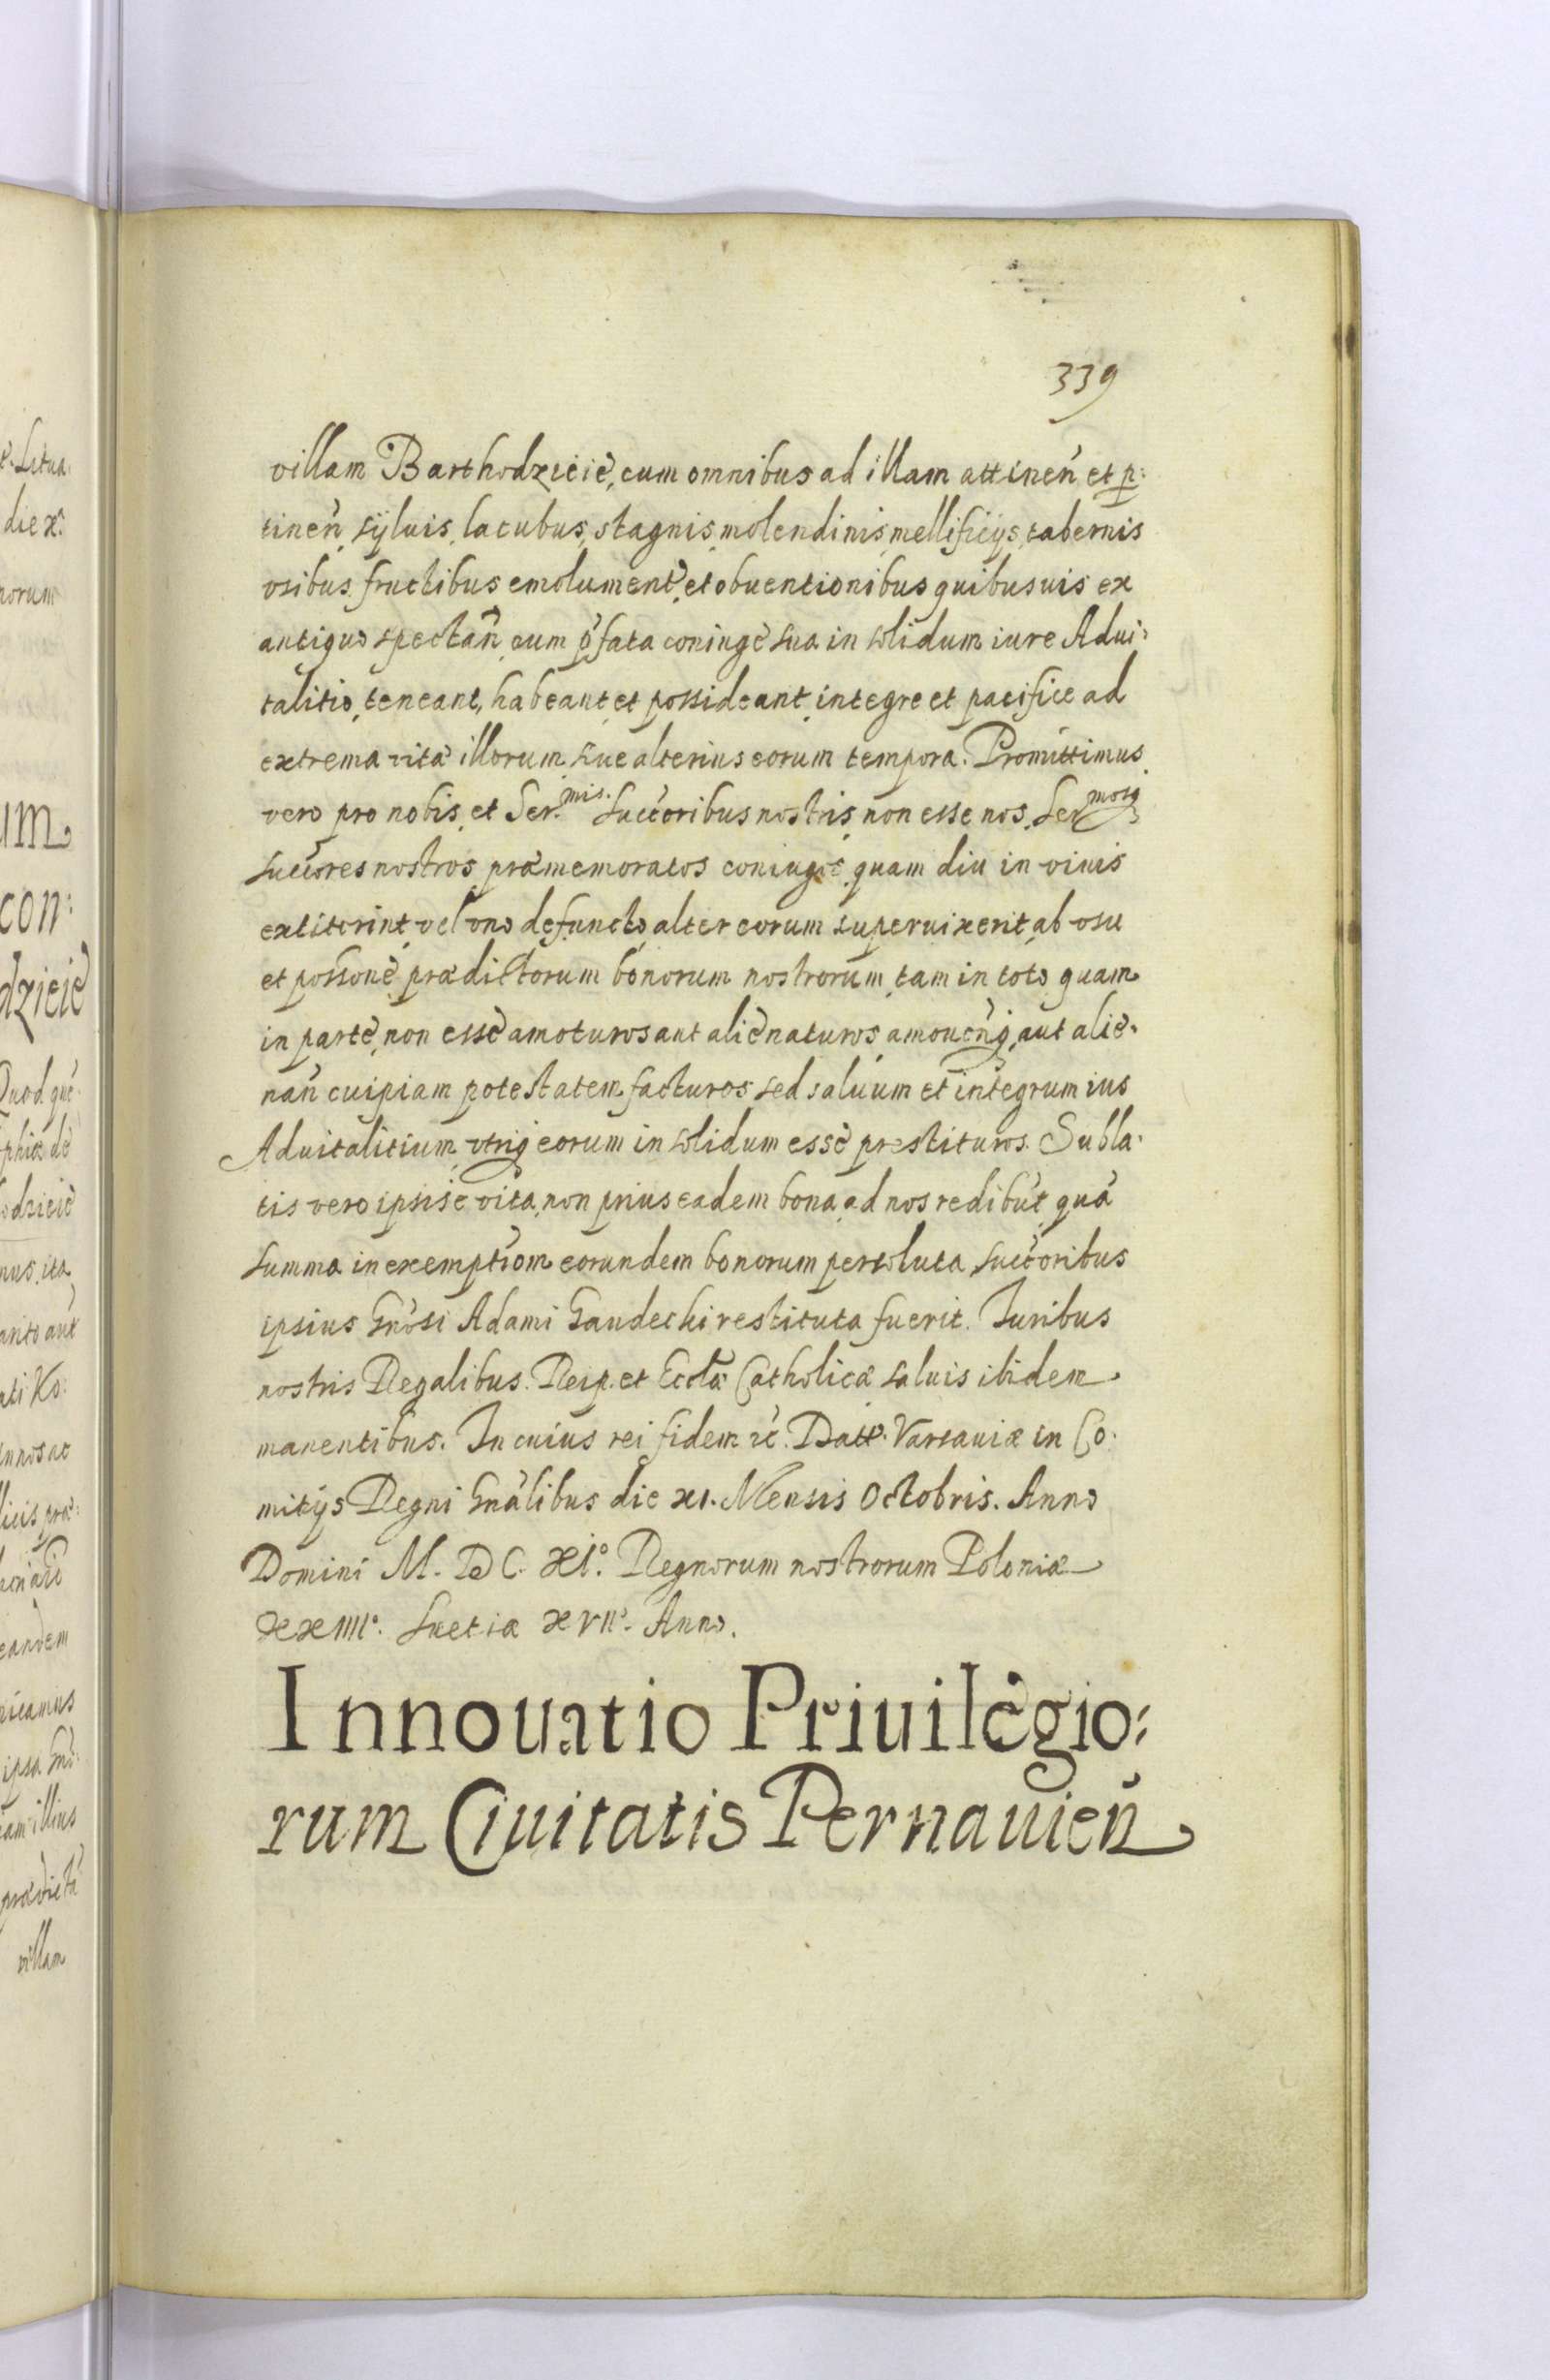 339
villam Barthodzieie, cum omnibus ad illam attinen̄ et p:
tinen̄, syluis, lacubus, stagnis, molendinis, mellificijs, tabernis
vsibus, fructibus emolument, et obuentionibus quibusuis ex
antiquo spectan̄, cum p̄fata coniuge sua in solidum iure Adui:
talitio, teneant, habeant, et possideant, integre et pacifice ad
extrema vitæ illorum, siue alterius eorum tempora. Promittimus
vero pro nobis, et Ser.mis. succōribus nostris, non esse nos, Sermosq
succōres nostros, præmemoratos coniuges, quam diu in viuis
extiterint, vel vno defuncto, alter eorum superuixerit, ab vsu
et possone, prædictorum bonorum nostrorum, tam in toto quam
in parte, non esse amoturos aut alienaturos, amouen̄q, aut alie:
nan̄ cuipiam potestatem facturos, sed saluum et integrum ius
Aduitalitium, vtriq eorum in solidum esse prestituros. Subla:
tis vero ipsis e vita, non prius eadem bona, ad nos redibūt, quā
summa in exemptiom eorundem bonorum persoluta, succōribus
ipsius Gnōsi Adami Gandecki restituta fuerit. Iuribus
nostris Regalibus. Reip. et Ecclæ Catholicæ saluis ibidem
manentibus. In cuius rei fidem &c. Datt. Varsauiæ in Co:
mitijs Regni Gnālibus die XI. Mensis Octobris. Anno
Domini M. DC. XIº. Regnorum nostrorum Poloniæ
XXIIIIº. Suetiæ XVIIº. Anno.
Innouatio Priuilegio:
rum Ciuitatis Pernauien̄